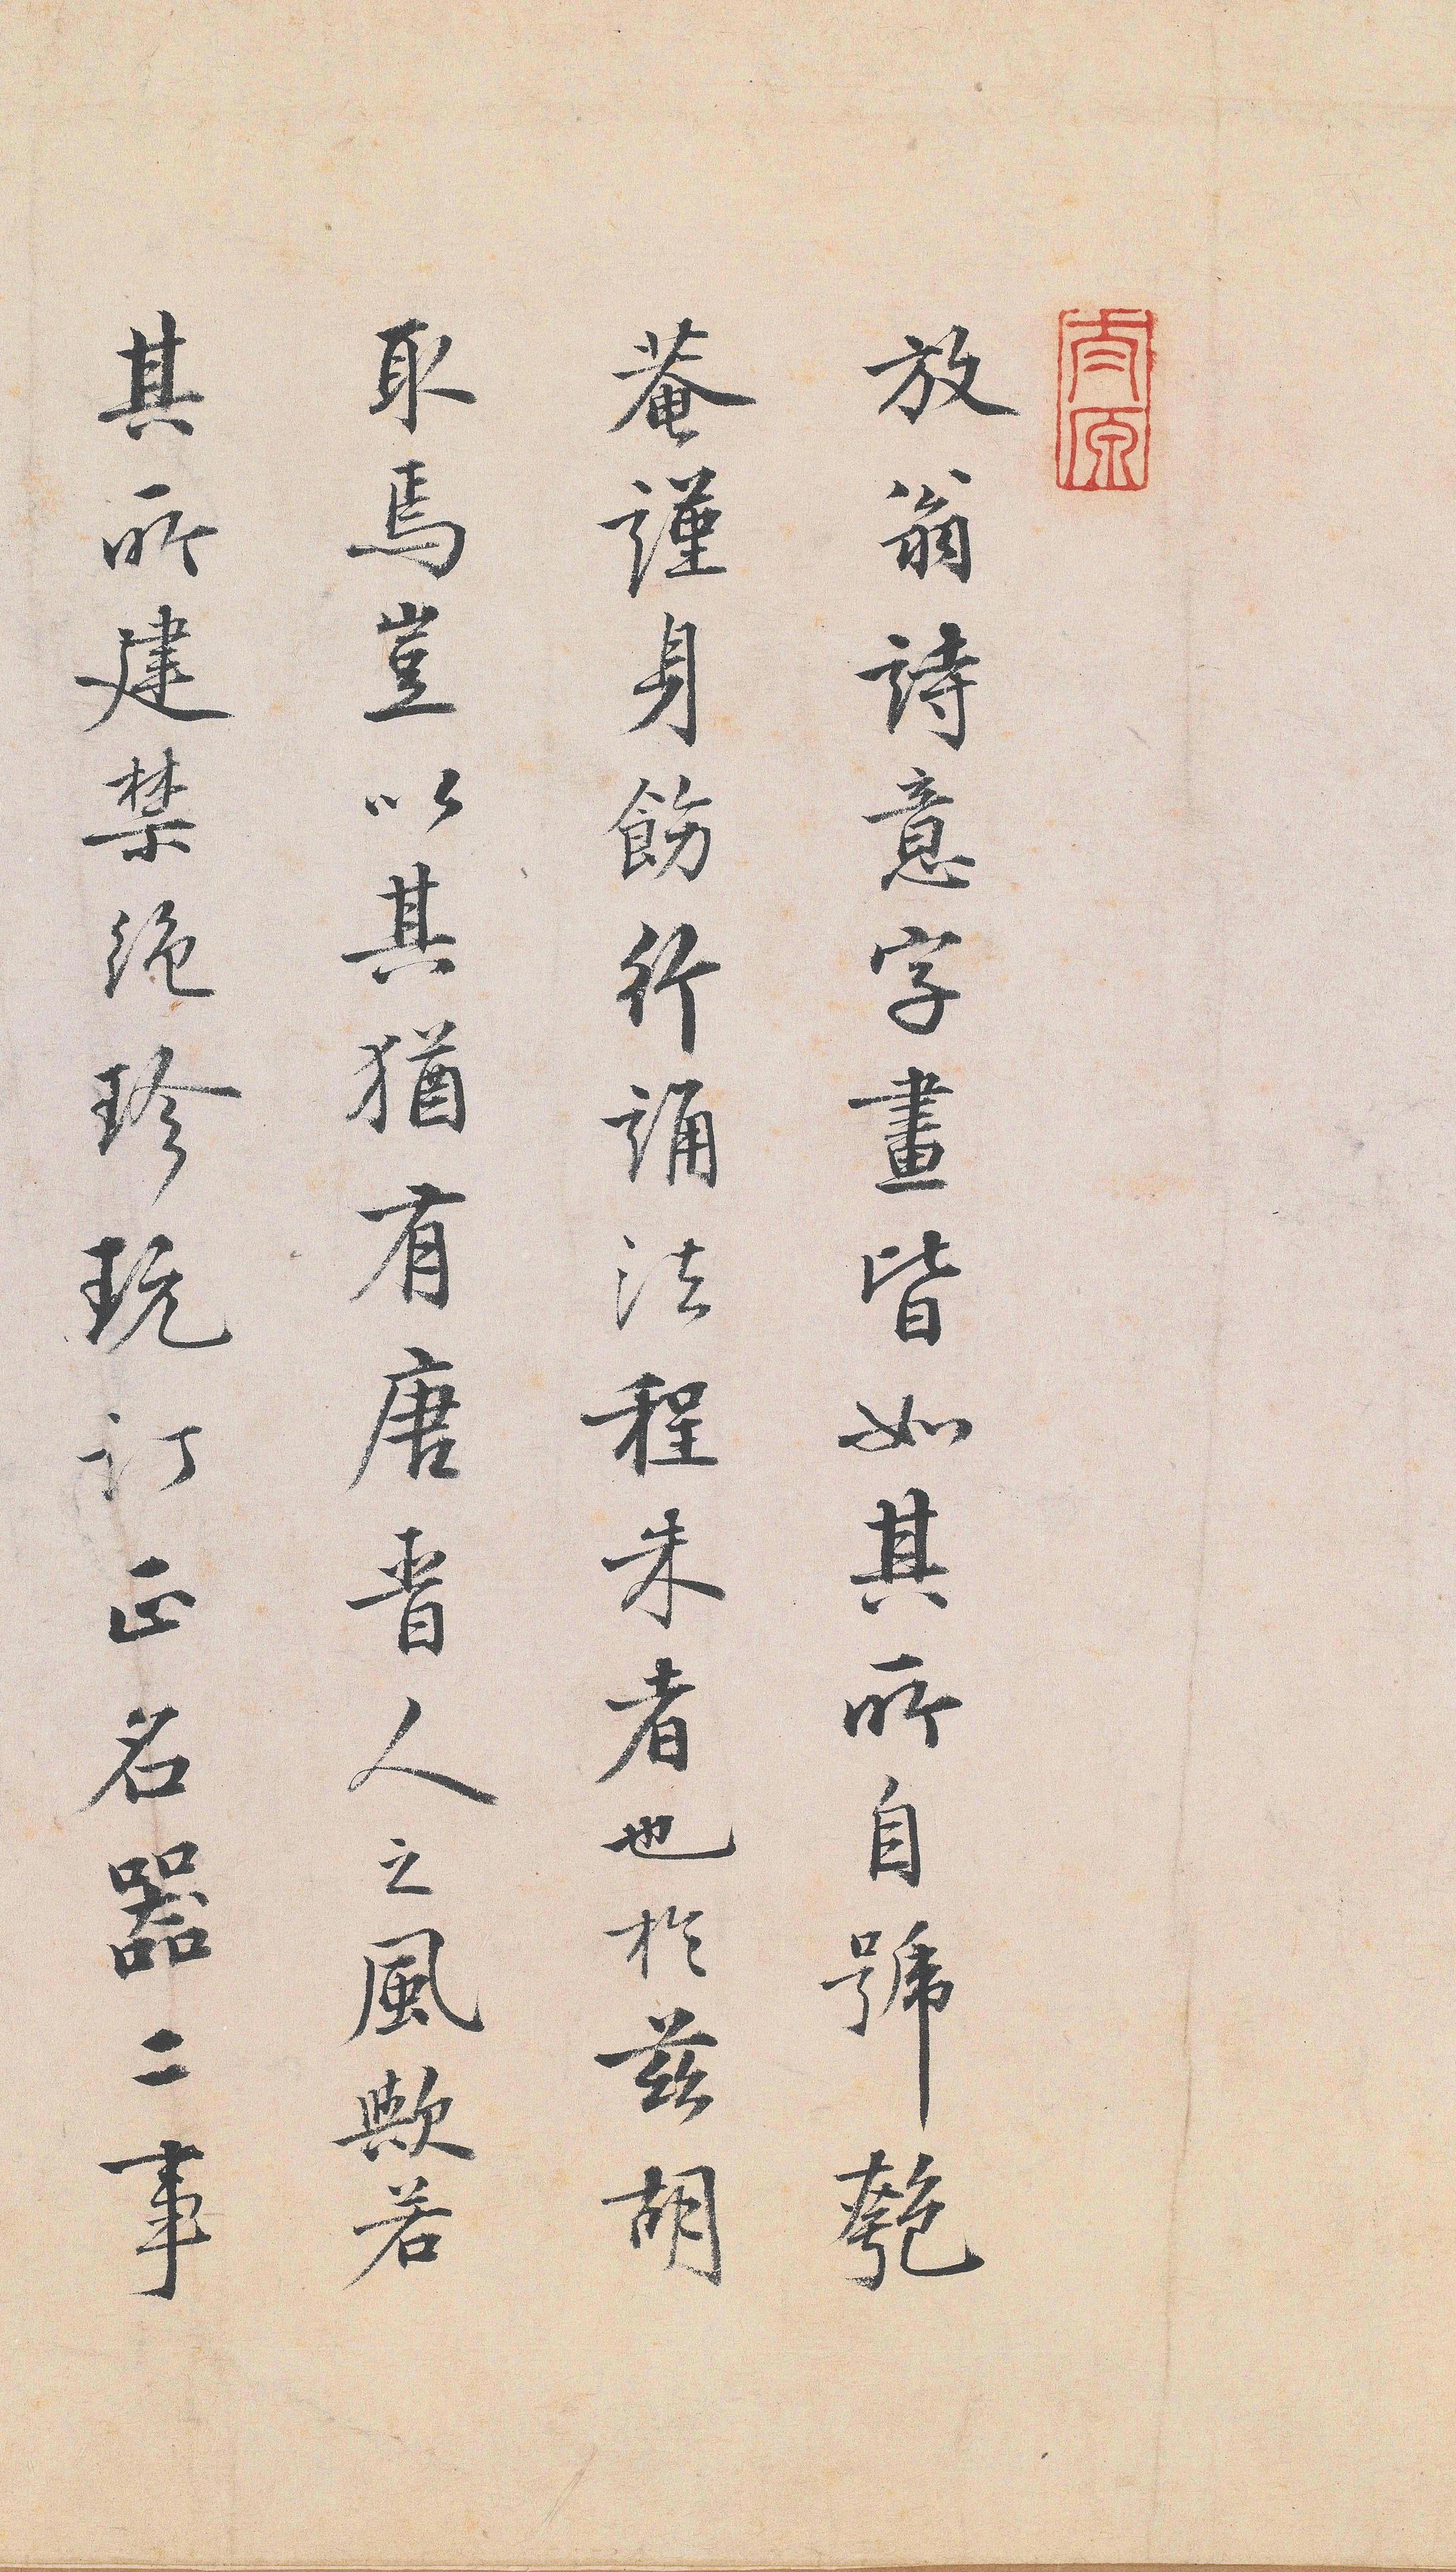 太原
放翁詩意字畫皆如其所自號匏
菴謹身飭行誦法程朱者也於茲胡
取焉豈以其猶有唐晉人之風歟若
其所建禁絕珍玩訂正名器二事